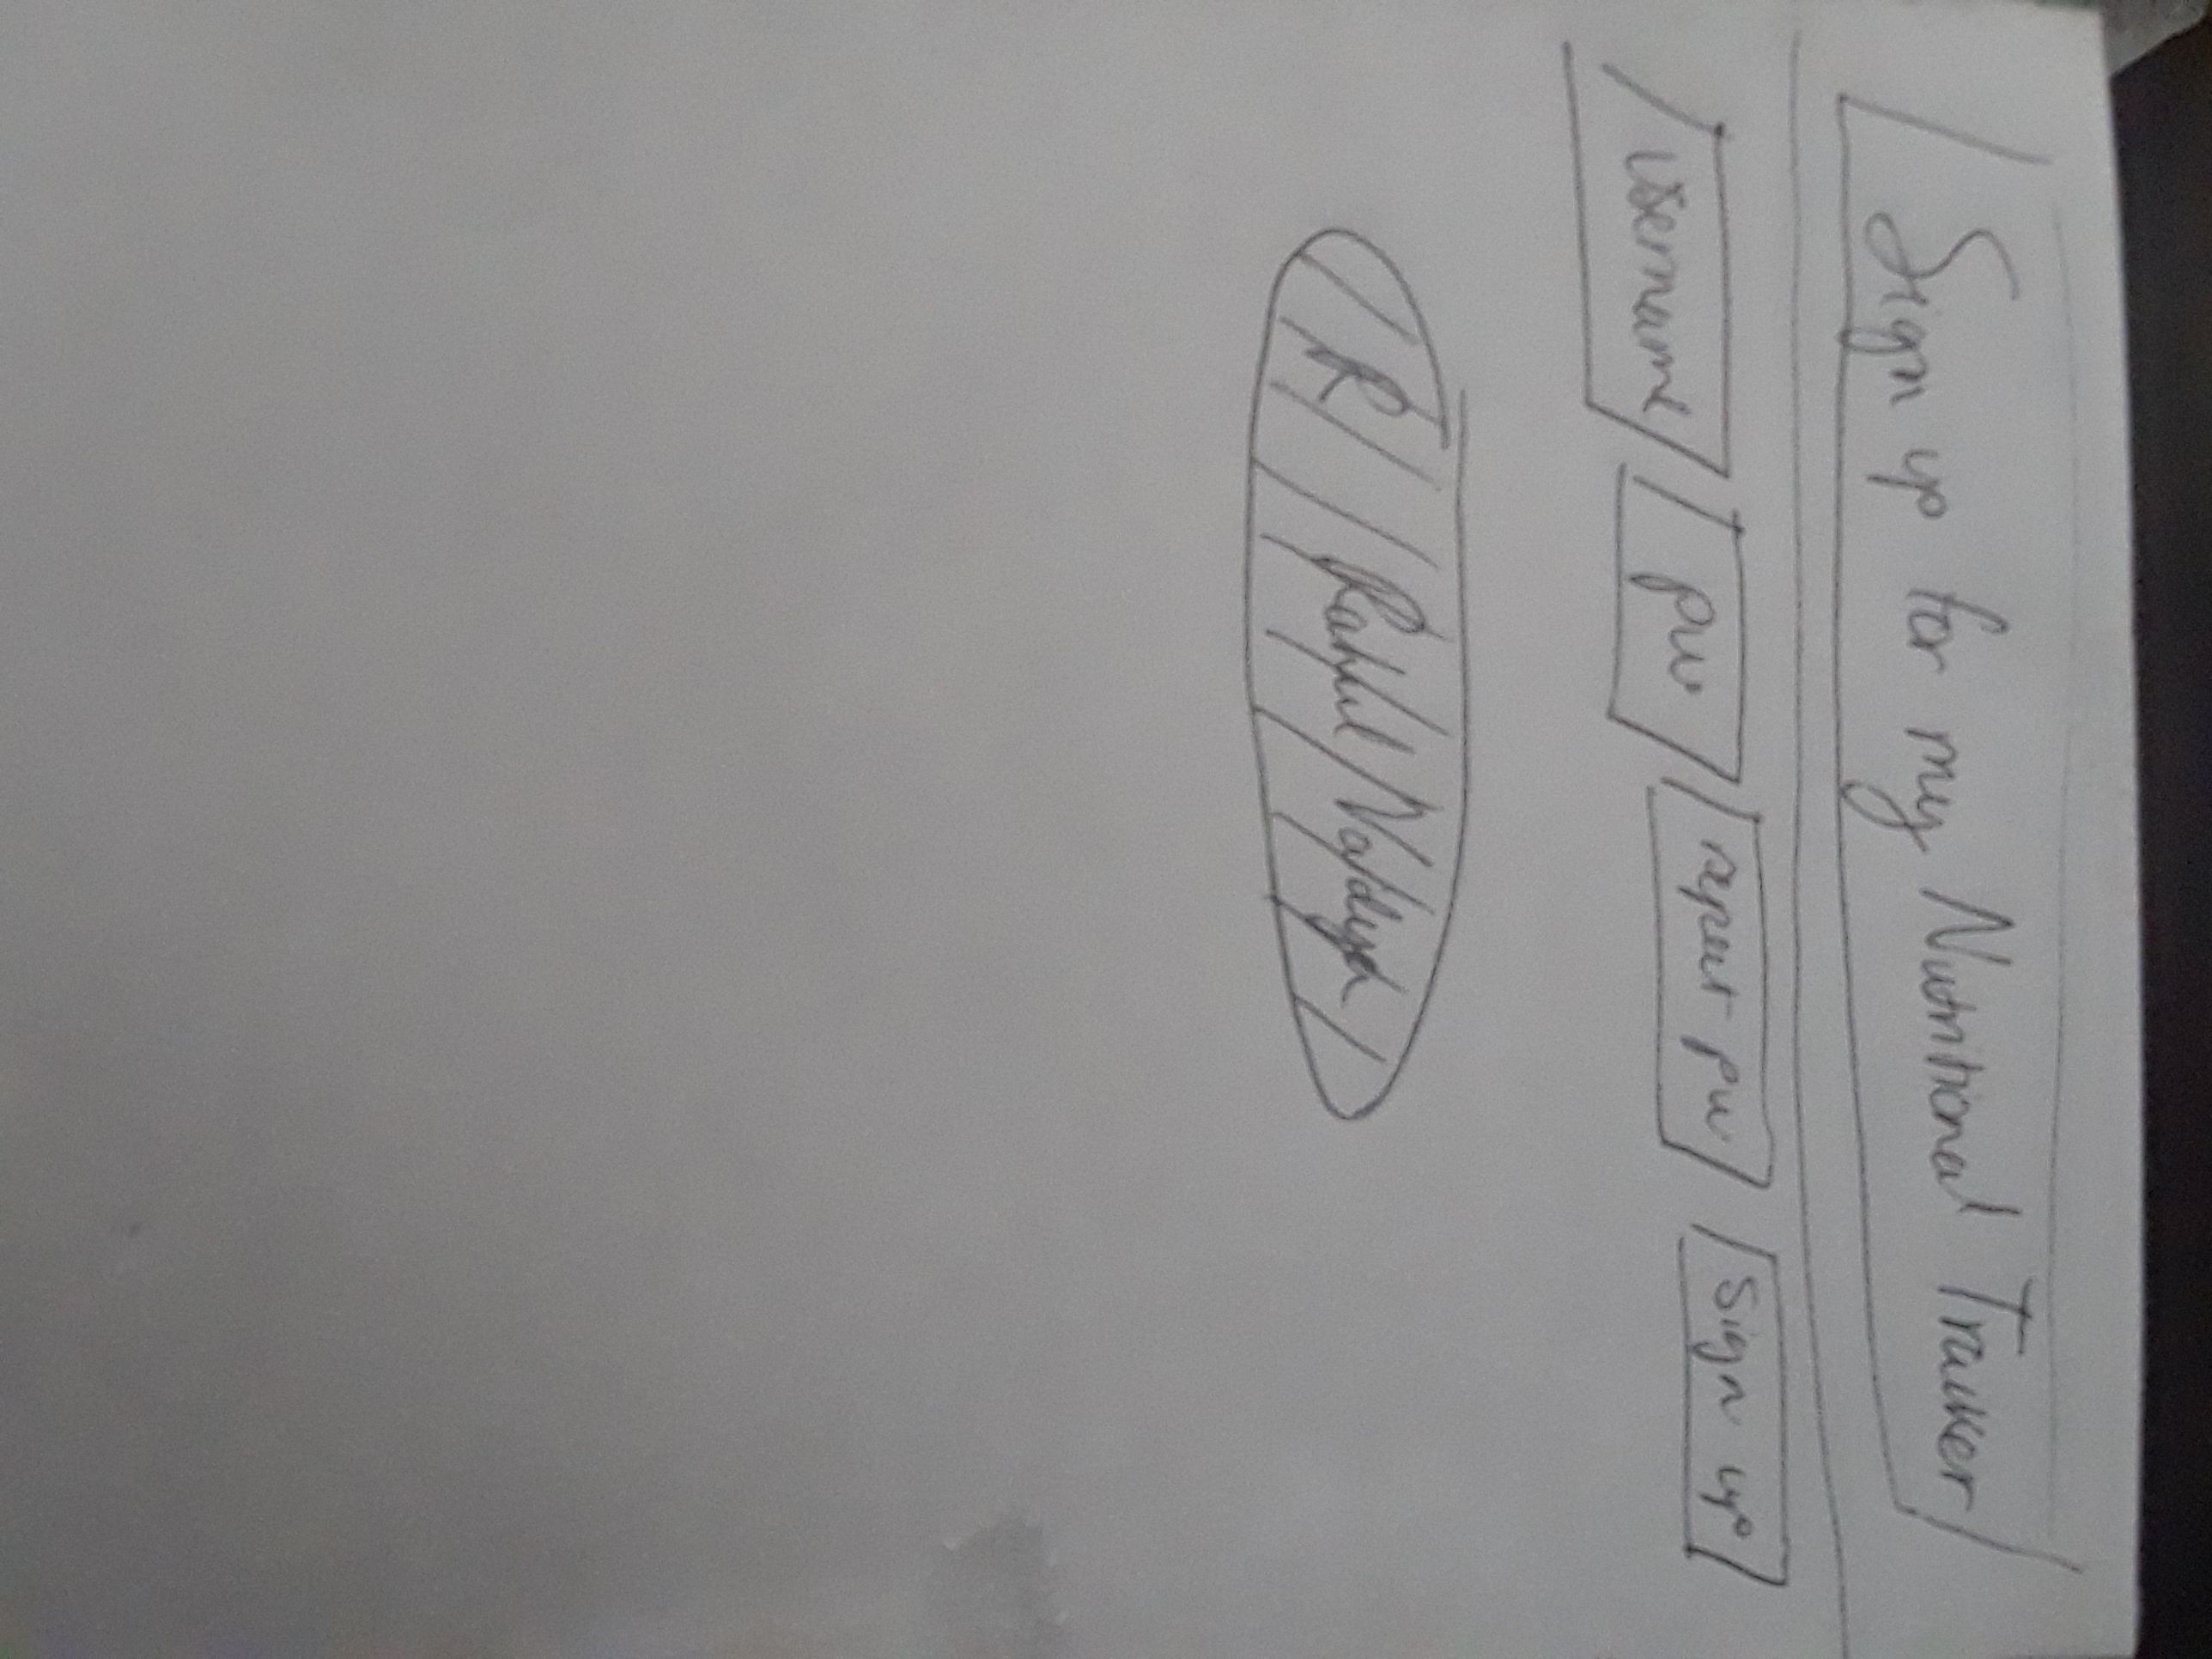 Sign up for my Nutritional Tracker
Username pw repeat pw Sign up
R Rahul